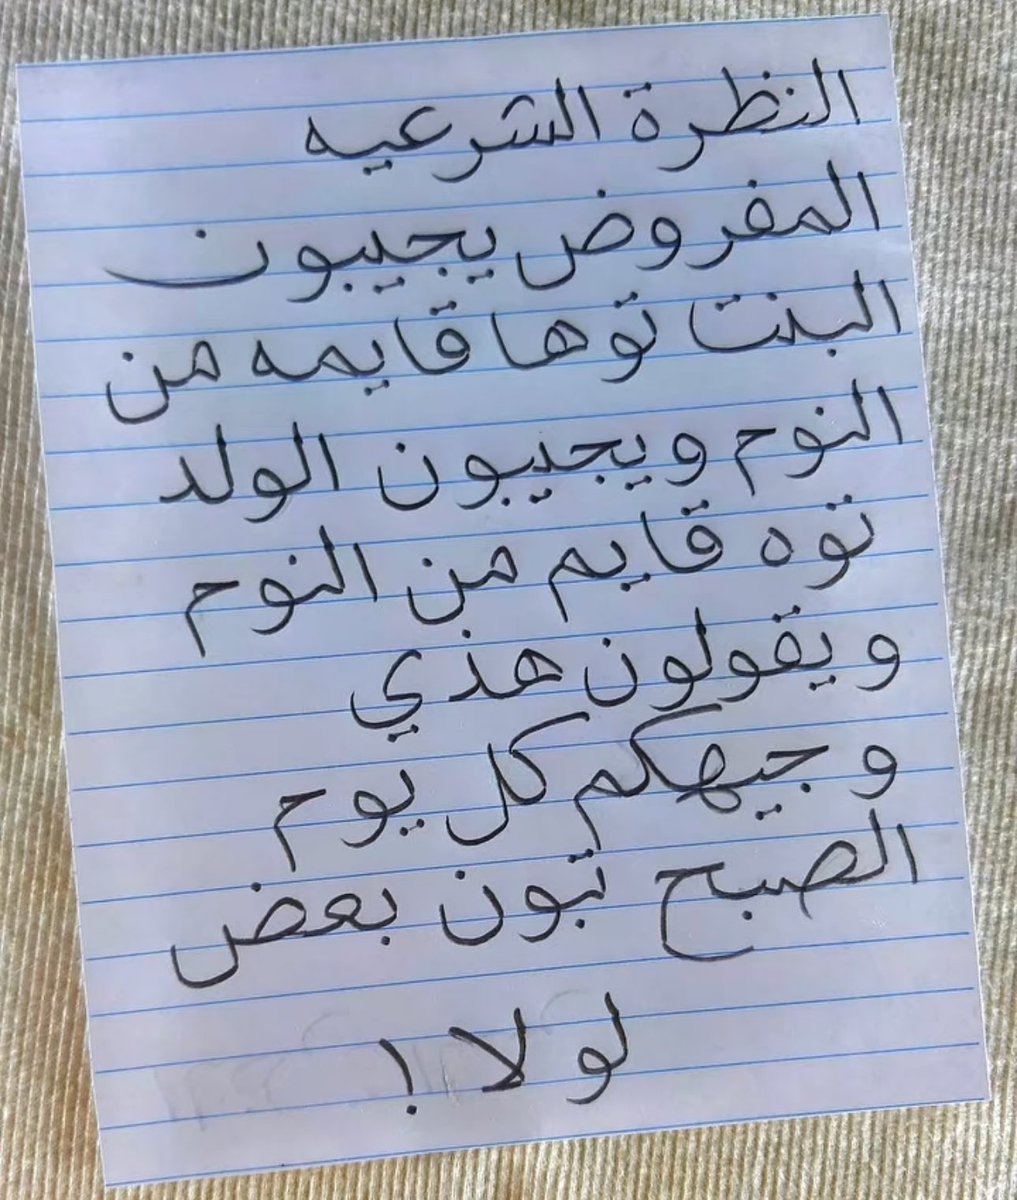 النظرة الشرعيه
المفروض يجيبون
البنت توها قايمه من
النوم ويجيبون الولد
توه قايم من النوم
ويقولون هذي
وجيهكم كل يوم
الصبح تبون بعض
لو لا !